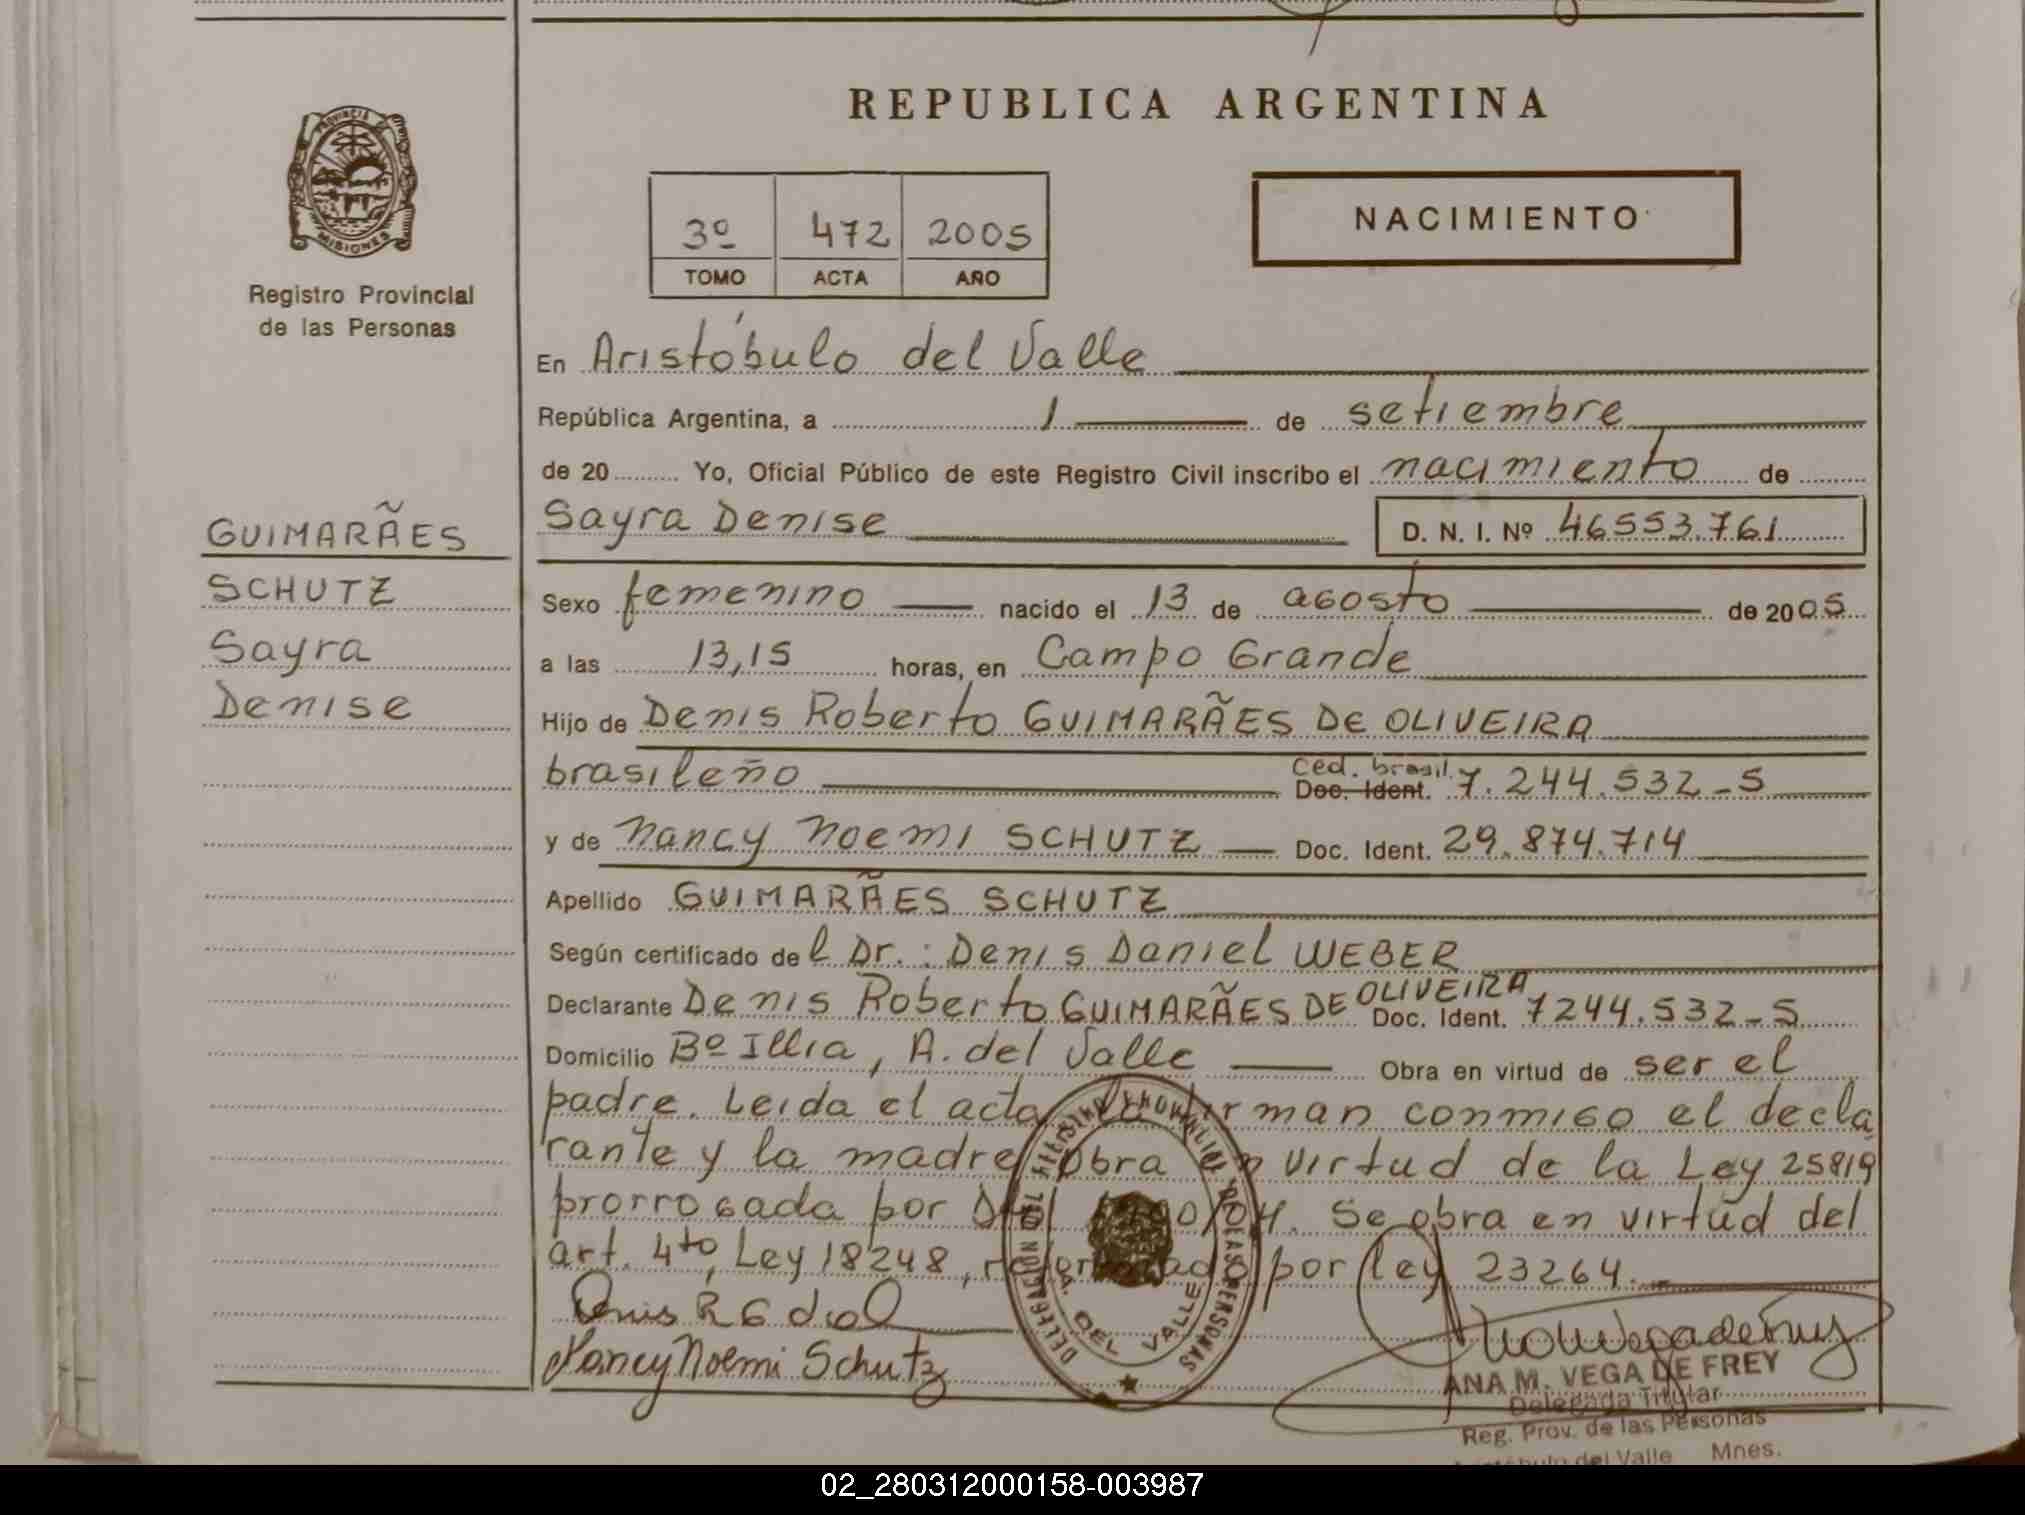 REPUBLICA ARGENTINA
PROVINCIA DE
MISIONES
Registro Provincial
de las Personas
3º 472 2005
TOMO ACTA AÑO
NACIMIENTO
En Aristóbulo del Valle
República Argentina, a 1 de setiembre
de 20 Yo, Oficial Público de este Registro Civil inscribo el nacimiento de
Sayra Denise D. N. I. Nº 46553.761
GUIMARÃES
SCHUTZ
Sayra
Denise
Sexo femenino nacido el 13 de agosto de 2005
a las 13,15 horas, en Campo Grande
Hijo de Denis Roberto GUIMARÃES DE OLIVEIRA
brasileño Ced. brasil. Doc. Ident. 7.244.532-5
y de Nancy Noemi SCHUTZ Doc. Ident. 29.874.714
Apellido GUIMARÃES SCHUTZ
Según certificado del Dr.: Denis Daniel WEBER
Declarante Denis Roberto GUIMARÃES DE OLIVEIRA Doc. Ident. 7244.532-5
Domicilio Bº Illia, A. del Valle Obra en virtud de ser el
padre. Leida el acta la firman conmigo el decla
rante y la madre Obra en virtud de la Ley 25819
prorrogada por /04. Se obra en virtud del
art. 4to, Ley 18248, por ley 23264.
Nancy Noemi Schutz
DELEGACION DEL REGISTRO PROVINCIAL DE LAS PERSONAS
A. DEL VALLE
ANA M. VEGA DE FREY
Delegada Titular
Reg. Prov. de las Personas
Aristóbulo del Valle Mnes.
02_280312000158-003987